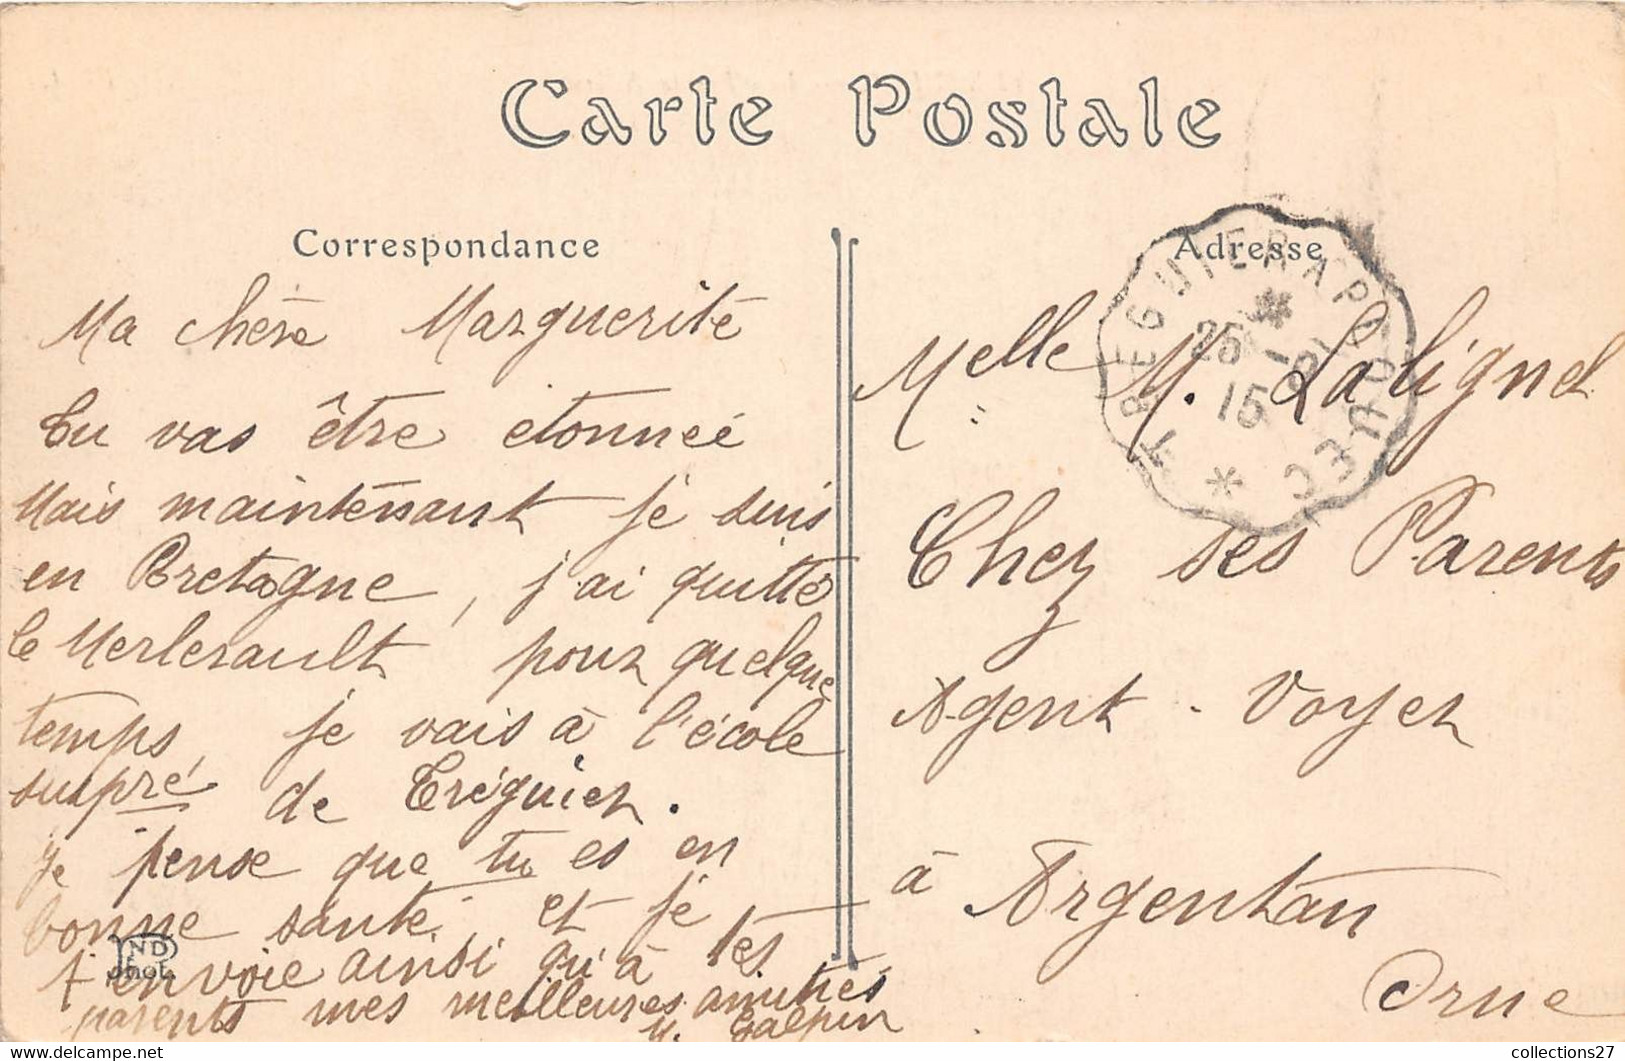 Carte Postale
Correspondance
Ma chère Marguerite
Tu vas être étonnée
Mais maintenant je suis
en Bretagne, j'ai quitté
le Merlerault pour quelque
temps, je vais à l'école
supre de Tréguier.
Je pense que tu es en
bonne santé, et je
t'envoie ainsi qu'à tes
parents mes meilleures amitiés
M. Galpin
ND
Phot.
Adresse
TREGUIER A PLOUEC
25 - 9
15
Melle M. Lalignel
Chez ses Parents
Agent-Voyer
à Argentan
Orne
collections27